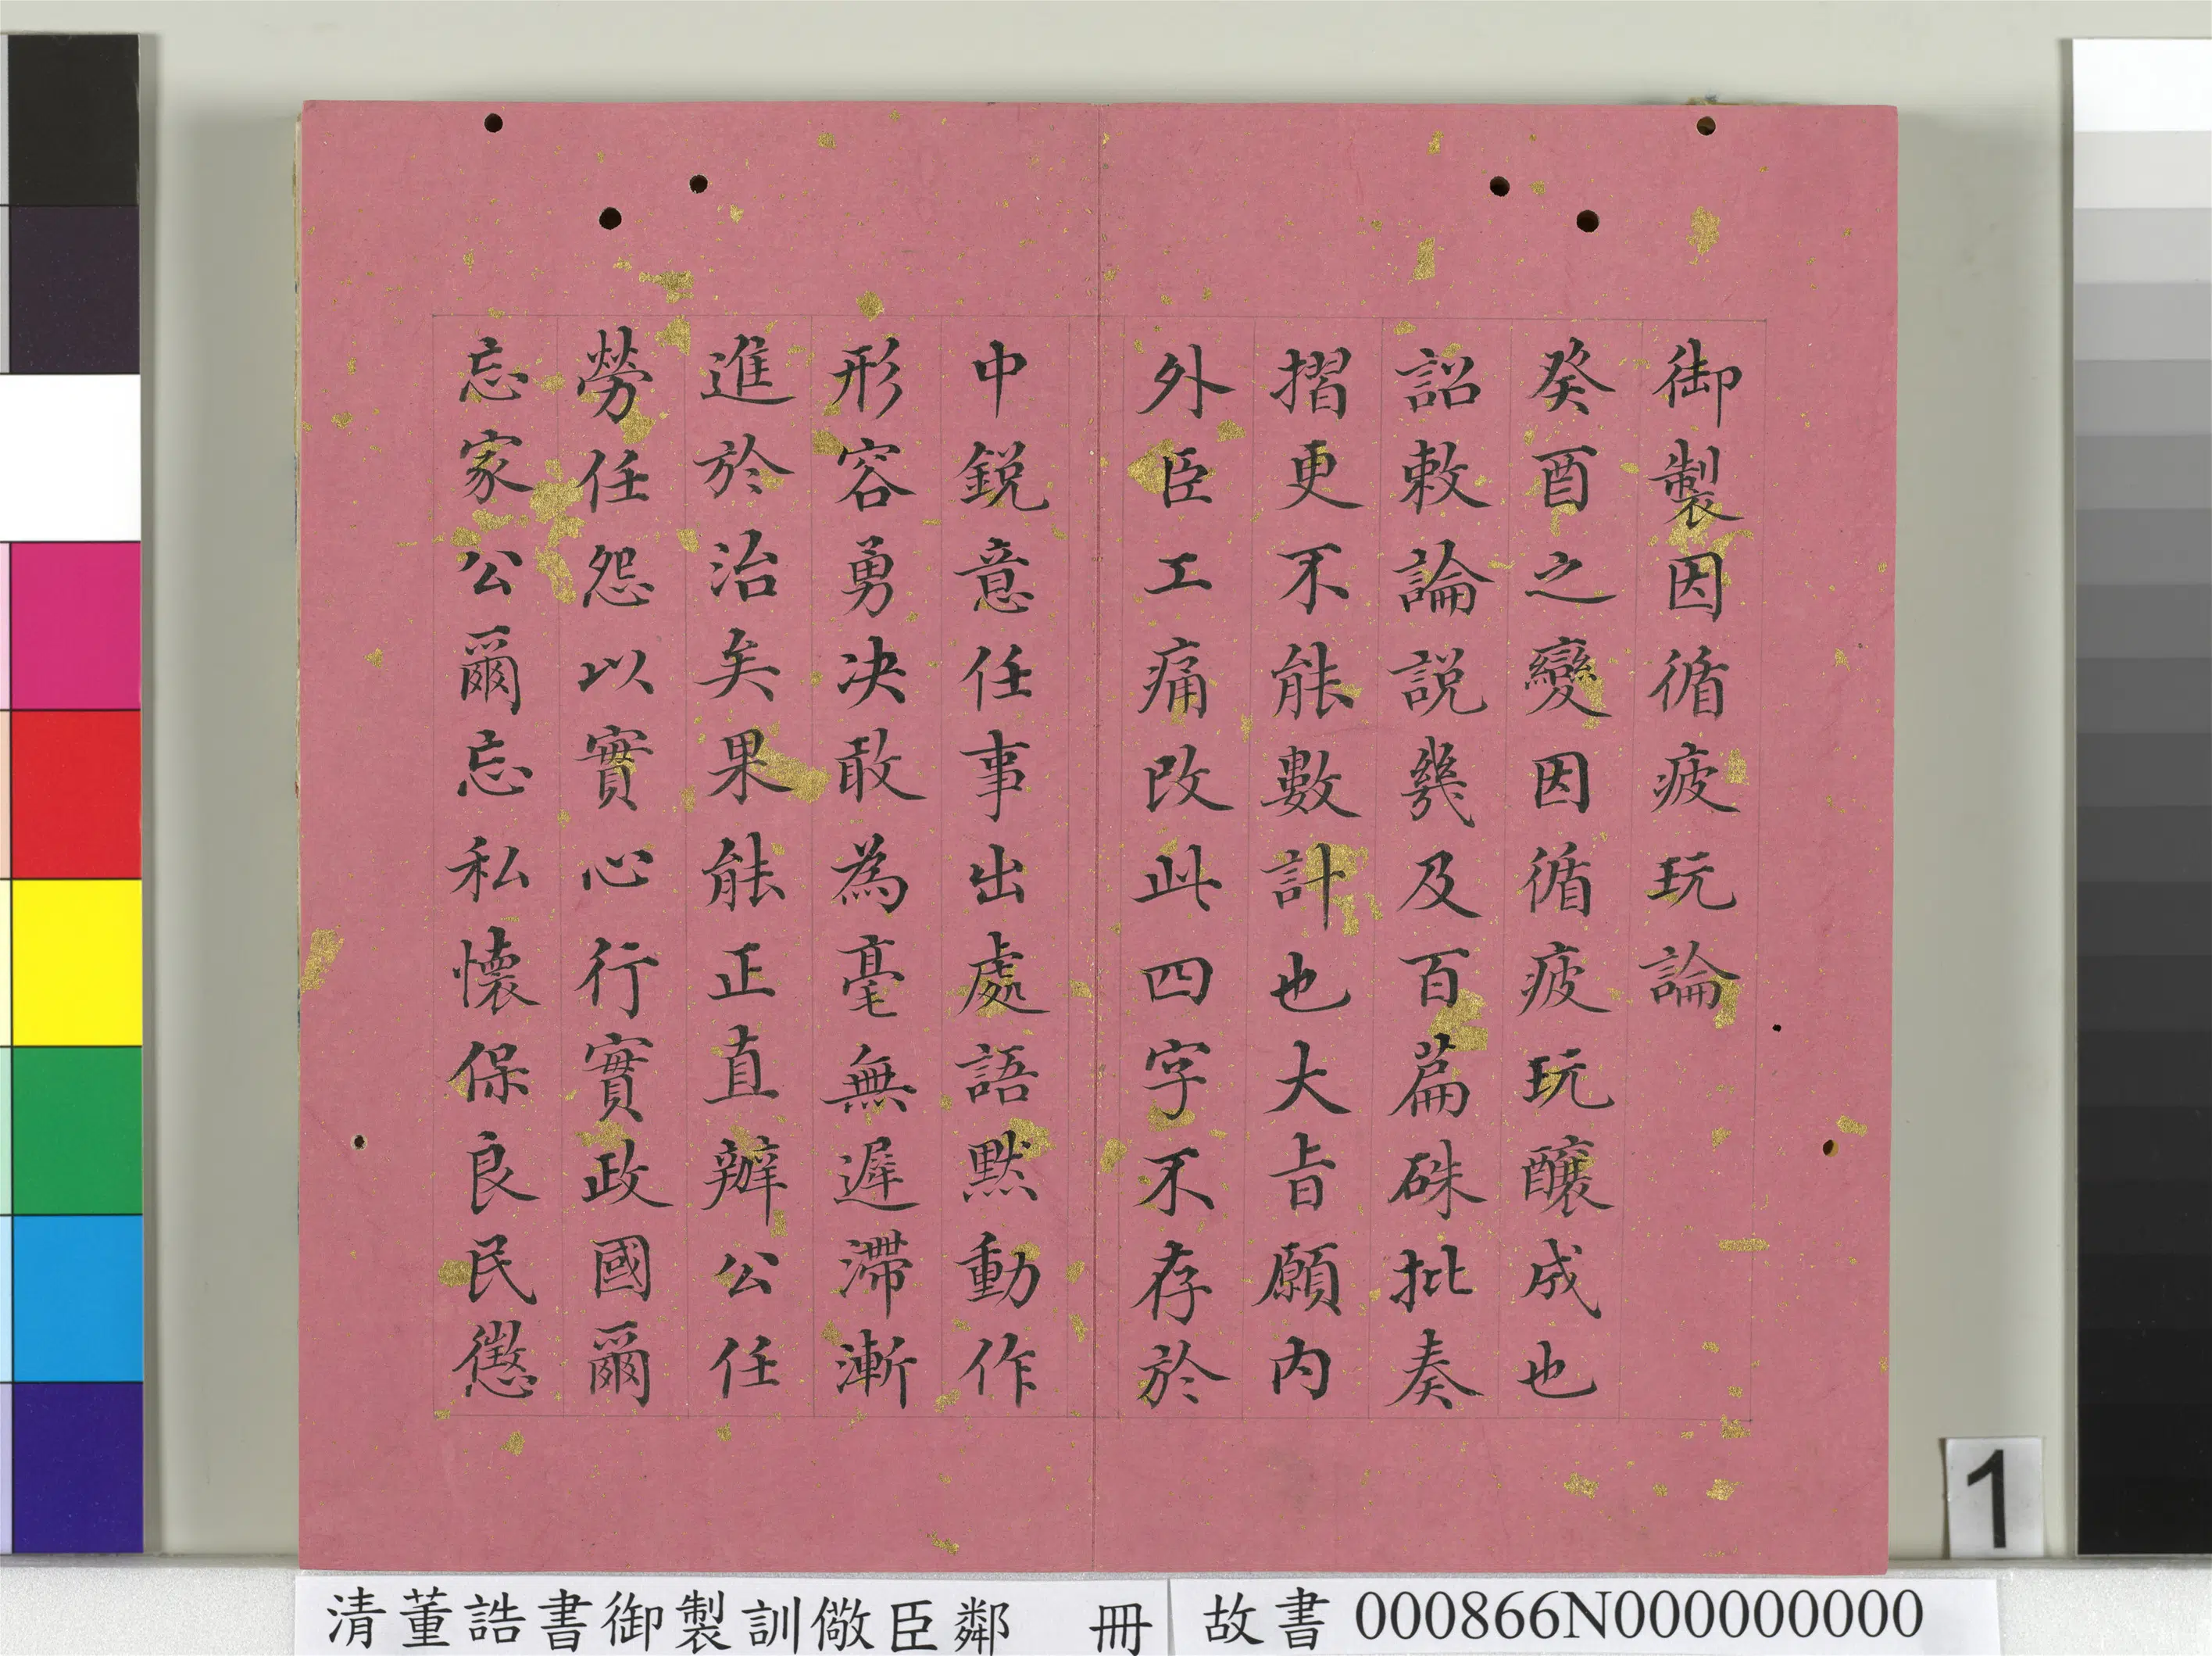 御製因循疲玩論
癸酉之變因循疲玩釀成也
詔敕論説幾及百篇硃批奏
摺更不能數計也大旨願内
外臣工痛改此四字不存於
中鋭意任事出處語默動作
形容勇决敢為毫無遲滯漸
進於治矣果能正直辦公任
勞任怨以實心行實政國爾
忘家公爾忘私懷保良民懲
清董誥書御製訓儆臣鄰 冊
故書 000866N000000000
1